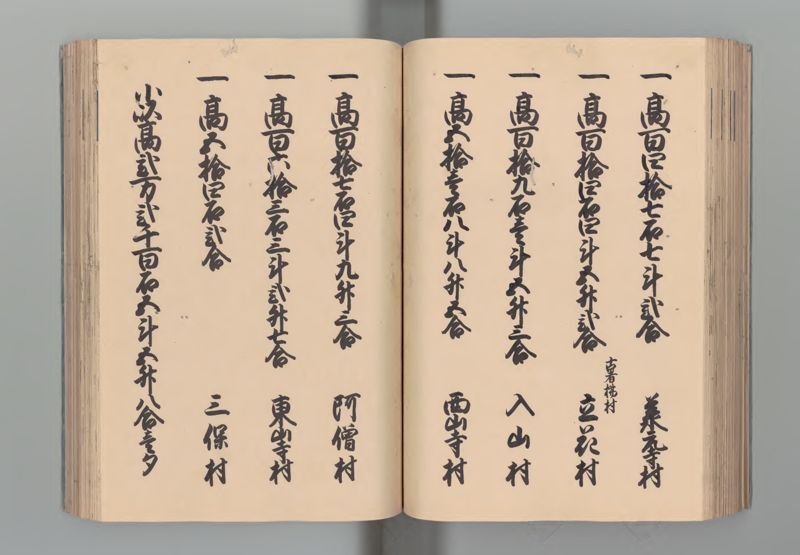 一高百四拾七石七斗弐合 葉元寺村
一高百拾四石四斗五升弐合 古者橘村 立花村
一高百拾九石壱斗五升三合 入山村
一高五拾壱石八斗八升五合 西山寺村
一高百拾七石四斗九升三合 阿僧村
一高百六拾三石三斗弐升七合 東山寺村
一高五拾四石弐合 三保村
小以高弐万弐千百石五斗五升八合壱夕